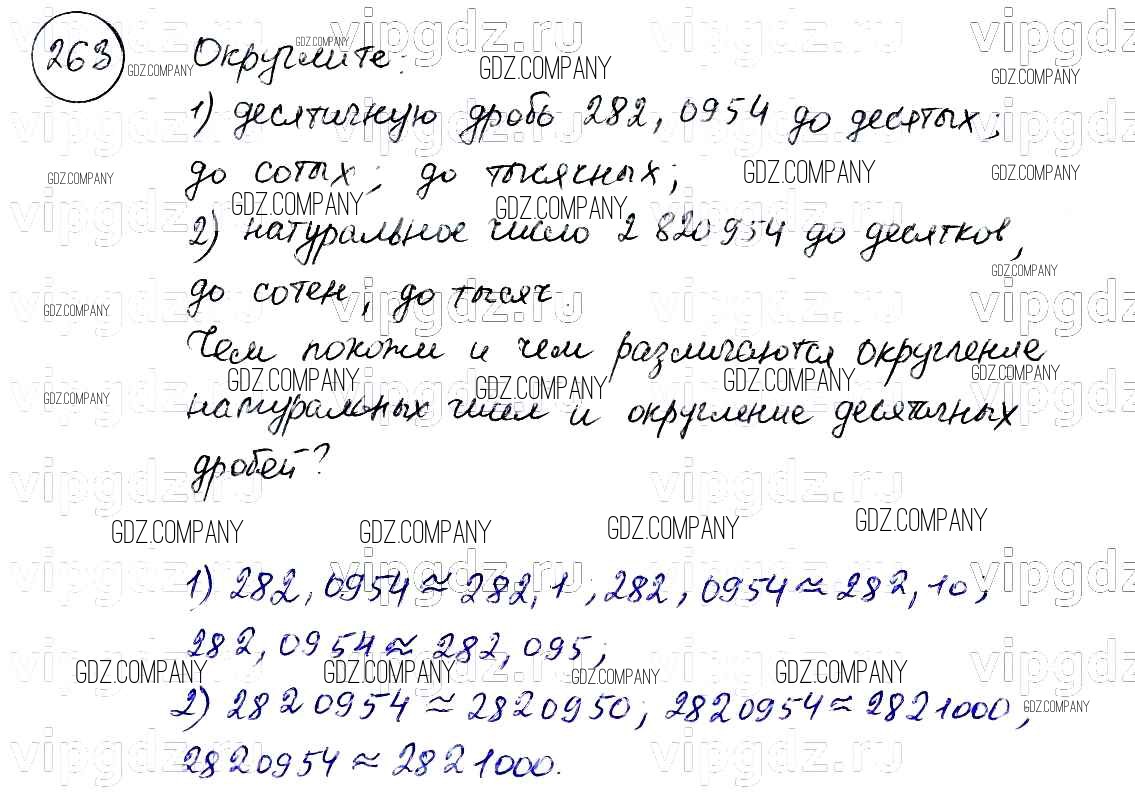 263 Округлите:
1) десятичную дробь 282,0954 до десятых;
до сотых; до тысячных;
2) натуральное число 2 820 954 до десятков,
до сотен, до тысяч.
Чем похожи и чем различаются округление
натуральных чисел и округление десятичных
дробей?
1) 282,0954 ≈ 282,1 ; 282,0954 ≈ 282,10;
282,0954 ≈ 282,095;
2) 2820954 ≈ 2820950; 2820954 ≈ 2821000;
2820954 ≈ 2821000.
vipgdz.ru
GDZ.COMPANY